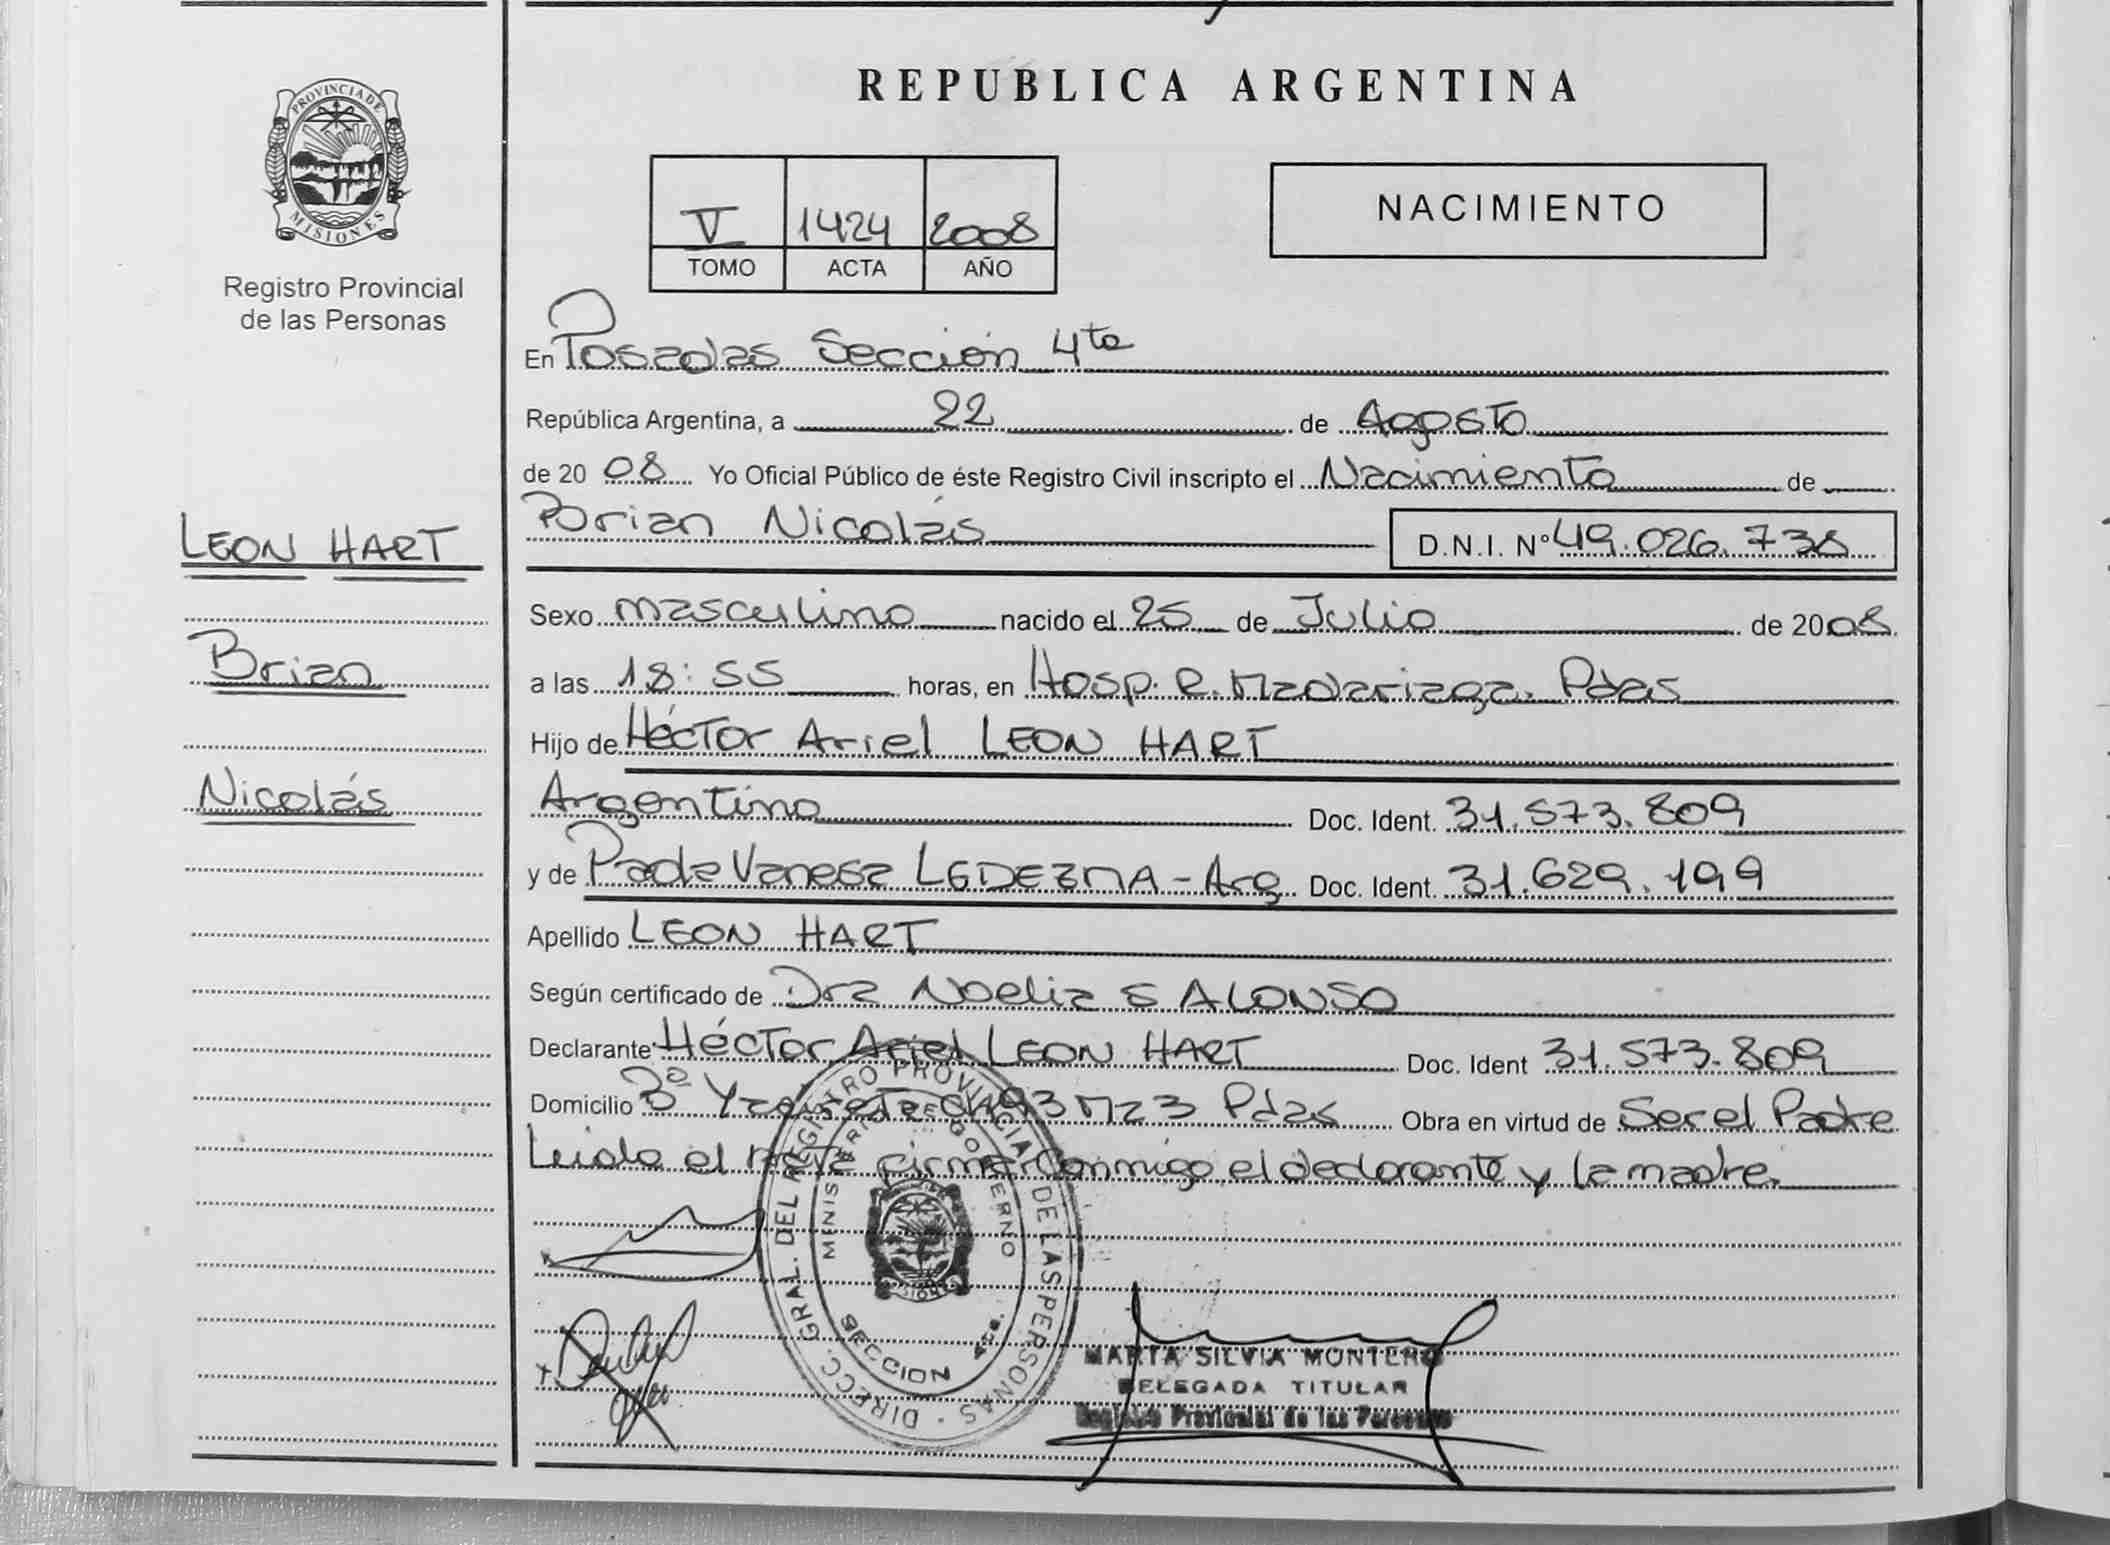 REPUBLICA ARGENTINA
PROVINCIA DE
MISIONES
Registro Provincial
de las Personas
V 1424 2008
TOMO ACTA AÑO
NACIMIENTO
En Posadas Sección 4ta
República Argentina, a 22 de Agosto
de 20 08 Yo Oficial Público de éste Registro Civil inscripto el Nacimiento de
Brian Nicolás D.N.I. Nº 49.026.738
LEON HART
Brian
Nicolás
Sexo masculino nacido el 25 de Julio de 2008
a las 18:55 horas, en Hosp. R. Madariaga. Pdas
Hijo de Héctor Ariel LEON HART
Argentino Doc. Ident. 31.573.809
y de Paola Vanesa LEDEZMA - Arg Doc. Ident. 31.629.199
Apellido LEON HART
Según certificado de Dra Noelia S ALONSO
Declarante Héctor Ariel LEON HART Doc. Ident 31.573.809
Domicilio Bº Pdas Obra en virtud de Ser el Padre
Leída el Acta firma conmigo el declarante y la madre.
DIRECC. GRAL. DEL REGISTRO PROVINCIAL DE LAS PERSONAS
MINISTERIO DE GOBIERNO
MISIONES
SECCION 4ta.
MARTA SILVIA MONTERO
DELEGADA TITULAR
Registro Provincial de las Personas